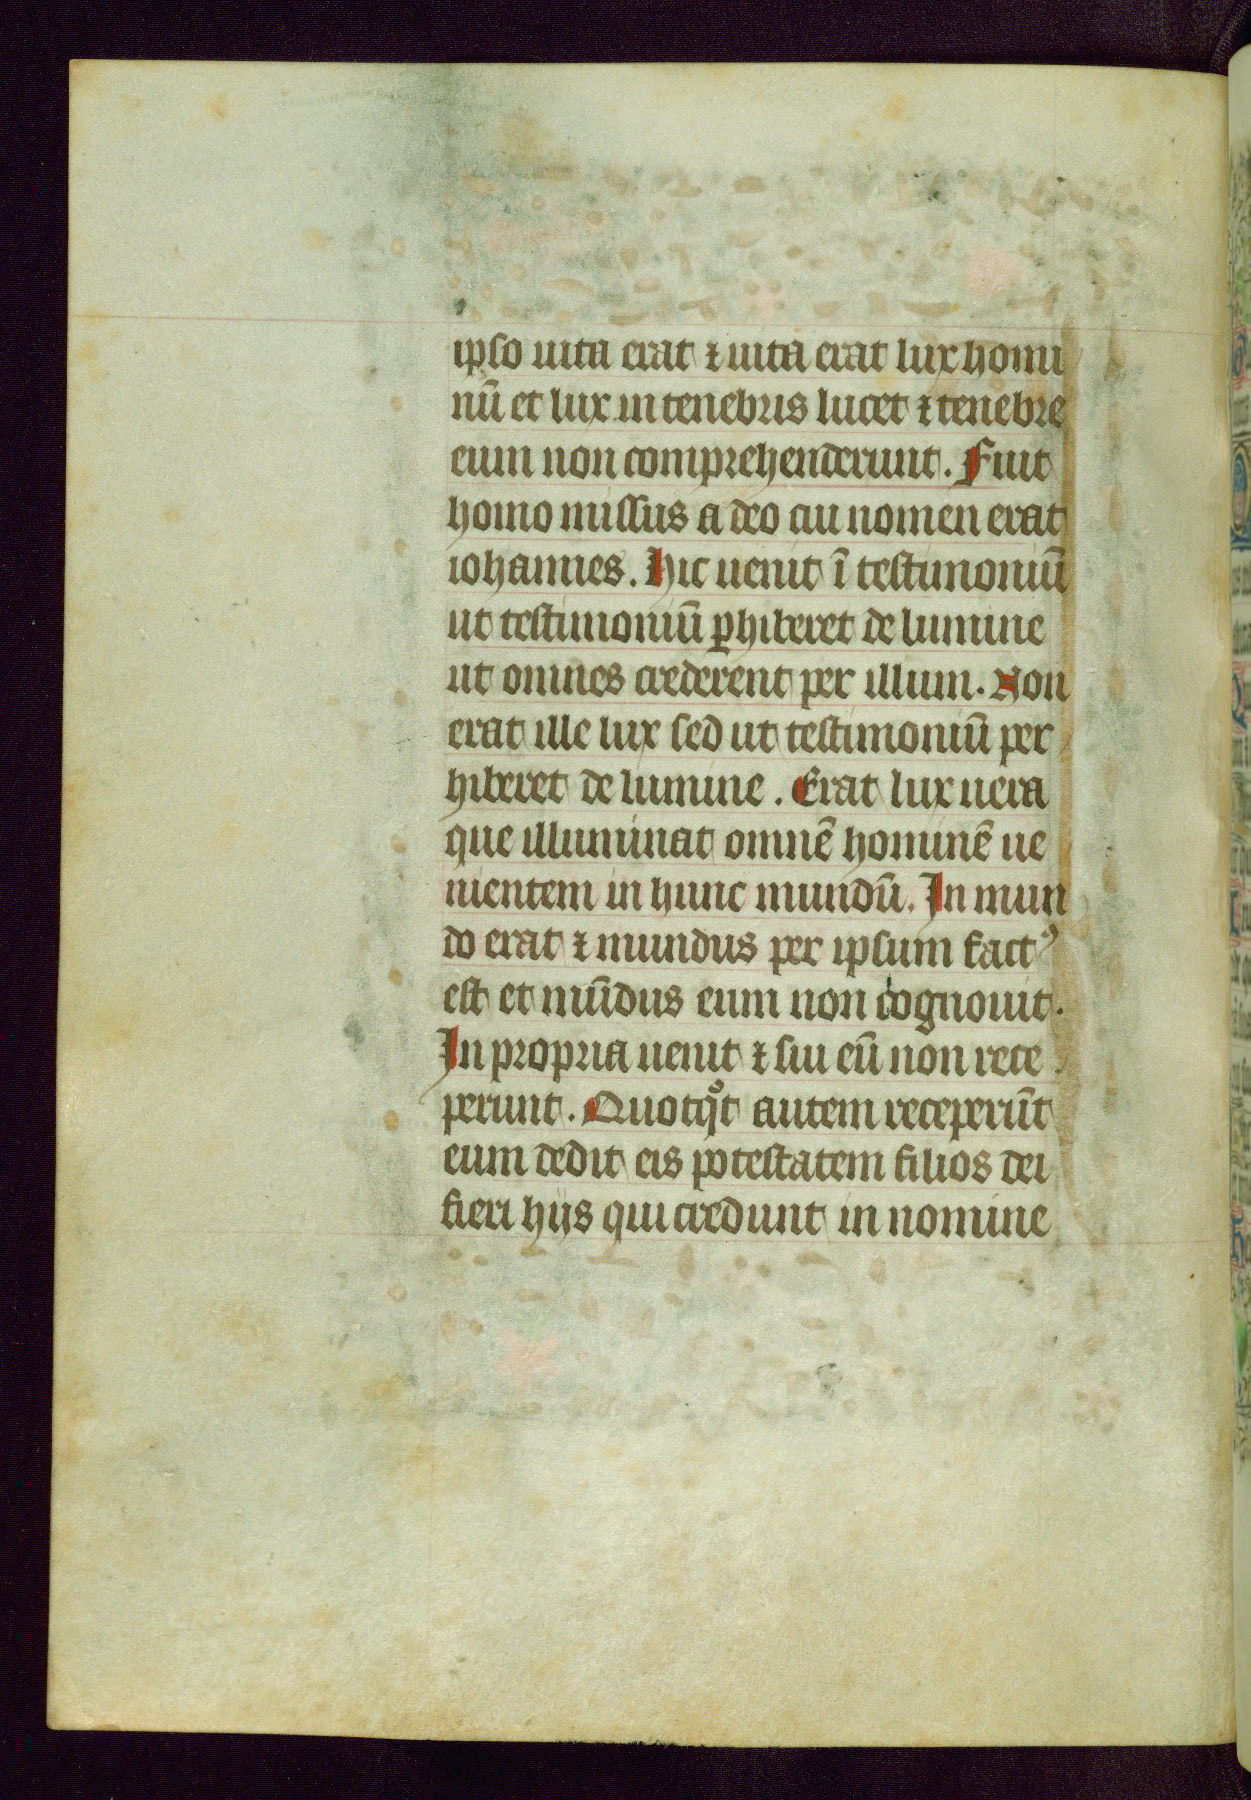 ipso uita erat ⁊ uita erat lux homi
nū et lux in tenebris lucet ⁊ tenebre
eum non comprehenderunt. Fuit
homo missus a deo cui nomen erat
iohannes. Hic uenit ī testimoniū
ut testimoniū ꝑhiberet de lumine
ut omnes crederent per illum. Non
erat ille lux sed ut testimoniū per
hiberet de lumine. Erat lux uera
que illuminat omnē hominē ue
nientem in hunc mundū. In mun
do erat ⁊ mundus per ipsum factꝰ
est et mūdus eum non cognouit.
In propria uenit ⁊ sui eū non rece
perunt. Quotqͦt autem receperūt
eum dedit eis potestatem filios dei
fieri hijs qui credunt in nomine